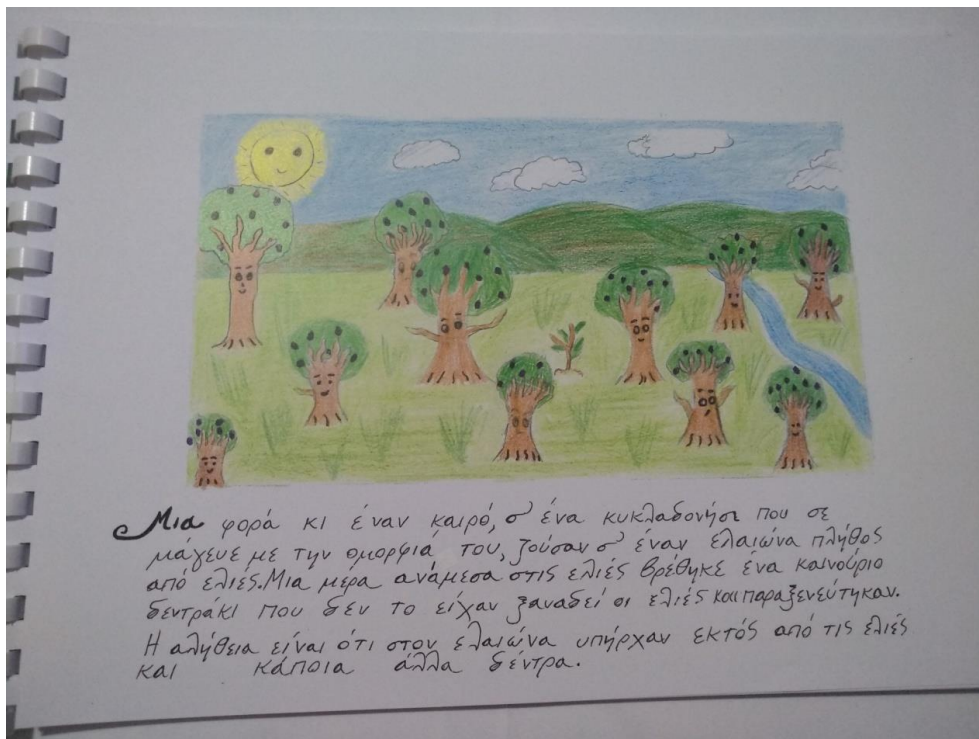 Μια φορά κι έναν καιρό, σ' ένα κυκλαδονήσι που σε
μάγευε με την ομορφιά του, ζούσαν σ' έναν ελαιώνα πλήθος
από ελιές. Μια μέρα ανάμεσα στις ελιές βρέθηκε ένα καινούριο
δεντράκι που δεν το είχαν ξαναδεί οι ελιές και παραξενεύτηκαν.
Η αλήθεια είναι ότι στον ελαιώνα υπήρχαν εκτός από τις ελιές
και κάποια άλλα δέντρα.